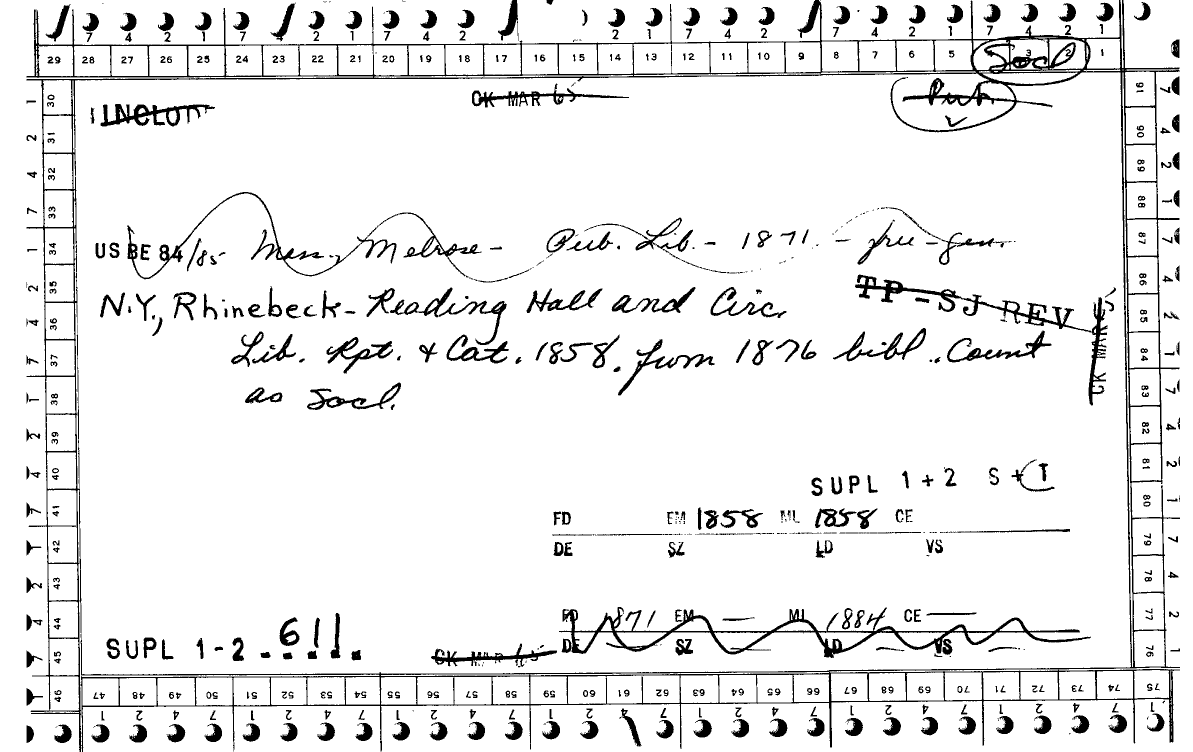 7 4 2 1 7 4 2 1 7 4 2 1 2 1 7 4 2 1 7 4 2 1 7 4 2 1
29 28 27 26 25 24 23 22 21 20 19 18 17 16 15 14 13 12 11 10 9 8 7 6 5 3 2 1
Socl
CK MAR 65
Pub.
US BE 84/85 Mass, Melrose - Pub. Lib. - 1871 - free-gen.
N.Y., Rhinebeck - Reading Hall and Circ.
TP-SJ REV
Lib. Rpt. & Cat. 1858. from 1876 bibl. Count
as Socl.
CK MAR 65
SUPL 1+2 S+T
FD EM 1858 ML 1858 CE
DE SZ LD VS
FD 1871 EM — ML 1884 CE —
DE SZ — LD — VS —
SUPL 1-2 - 611
CK MAR 65
30 31 32 33 34 35 36 37 38 39 40 41 42 43 44 45 46
91 90 89 88 87 86 85 84 83 82 81 80 79 78 77 76 75
47 48 49 50 51 52 53 54 55 56 57 58 59 60 61 62 63 64 65 66 67 68 69 70 71 72 73 74